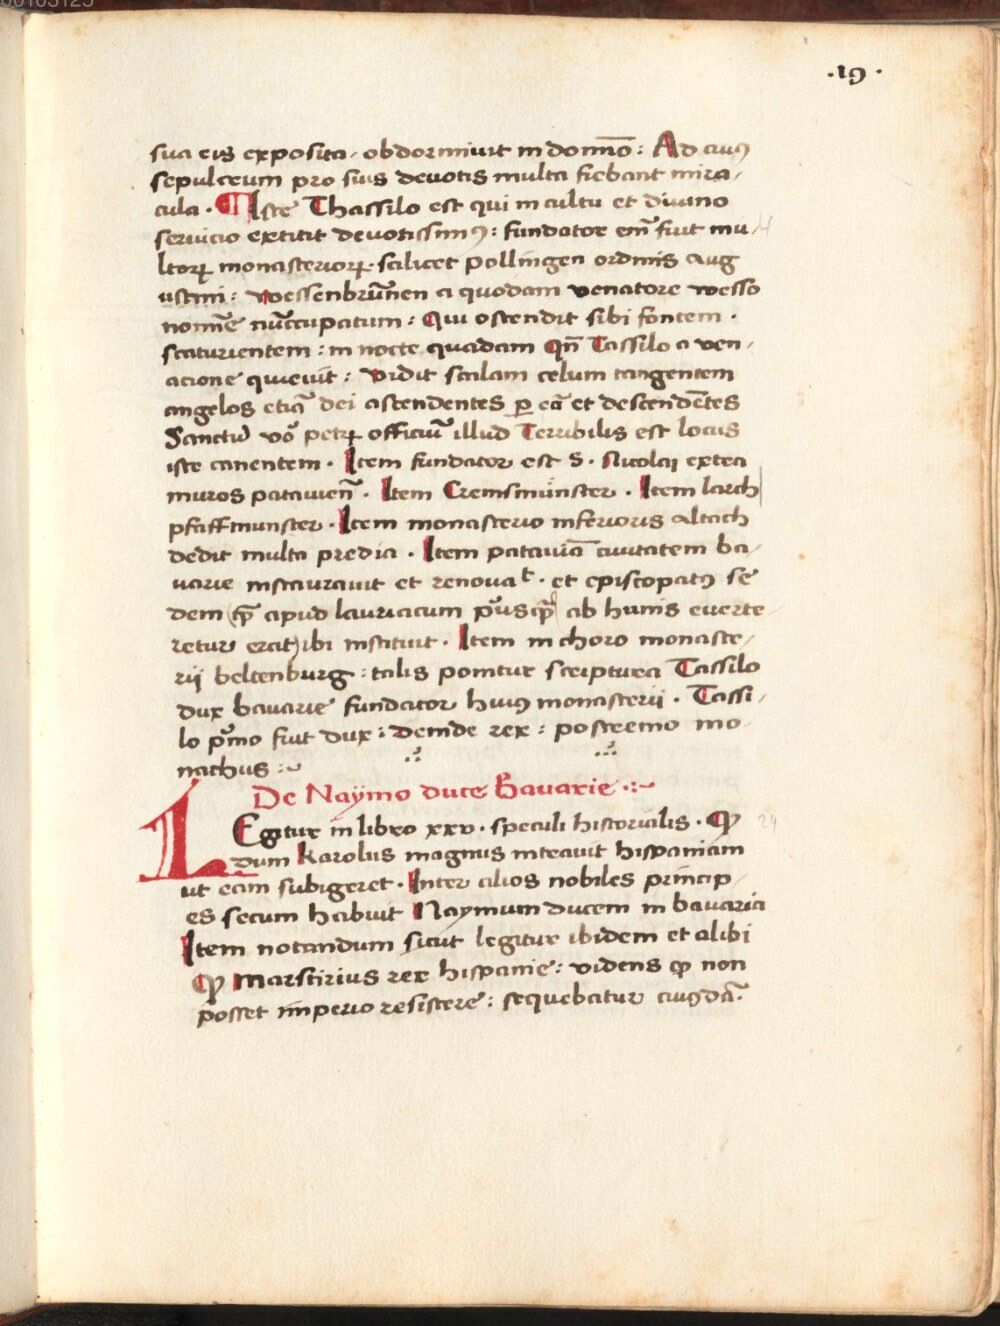 ·19·
sua eis exposita / obdormiuit in domino̅ : Ad cuiꝰ
sepulcrum pro suis deuotis multa fiebant mira /
cula · ¶ Iste Thassilo est qui in cultu et diuino
seruicio extitit deuotissimꝰ : fundator em̅ fuit mu /
ltoꝝ monasterioꝝ · scilicet pollingen ordinis aug
ustini : wessenbrun̅en a quodam venatore wesso
nomi̅e nu̅ccupatum : Qui ostendit sibi fontem ·
scaturientem : in nocte quadam Qn̅ Tassilo a ven /
acione quieuit : vidit scalam celum tangentem
angelos etia̅ dei ascendentes ꝑ ea̅ et descende̅tes
Sanctu̅ vo̅ petꝝ officiu̅ illud Terribilis est locus
iste canentem · Item fundator est S · Nicolaj extra
muros patauien̅ · Item Cremsmünster · Item larch
pfaffmunster · Item monasterio inferioris altach
dedit multa predia · Item patauia̅ ciuitatem ba /
uarie instaurauit et renouaᵗ · et episcopatꝰ se
dem (q̅ apud lauriacum p̅us q̅ ab hunis euerte
retur erat) ibi instituit · Item in choro monaste /
rij beltenburg : talis ponitur scriptura Tassilo
dux bauarie fundator huiꝰ monasterii · Tassi /
lo p̅mo fuit dux : deinde rex : postremo mo
nachus :~
De Naÿmo duce Bauarie ·:~
LEgitur in libro xxv · speculi historialis · Ꝙ
dum Karolus magnus intrauit hispaniam
ut eam subigeret · Inter alios nobiles princip /
es secum habuit Naymum ducem in bauaria
Item notandum sicut legitur ibidem et alibi
Ꝙ Marsirius rex hispanie : videns ꝙ non
posset imperio resistere : sequebatur